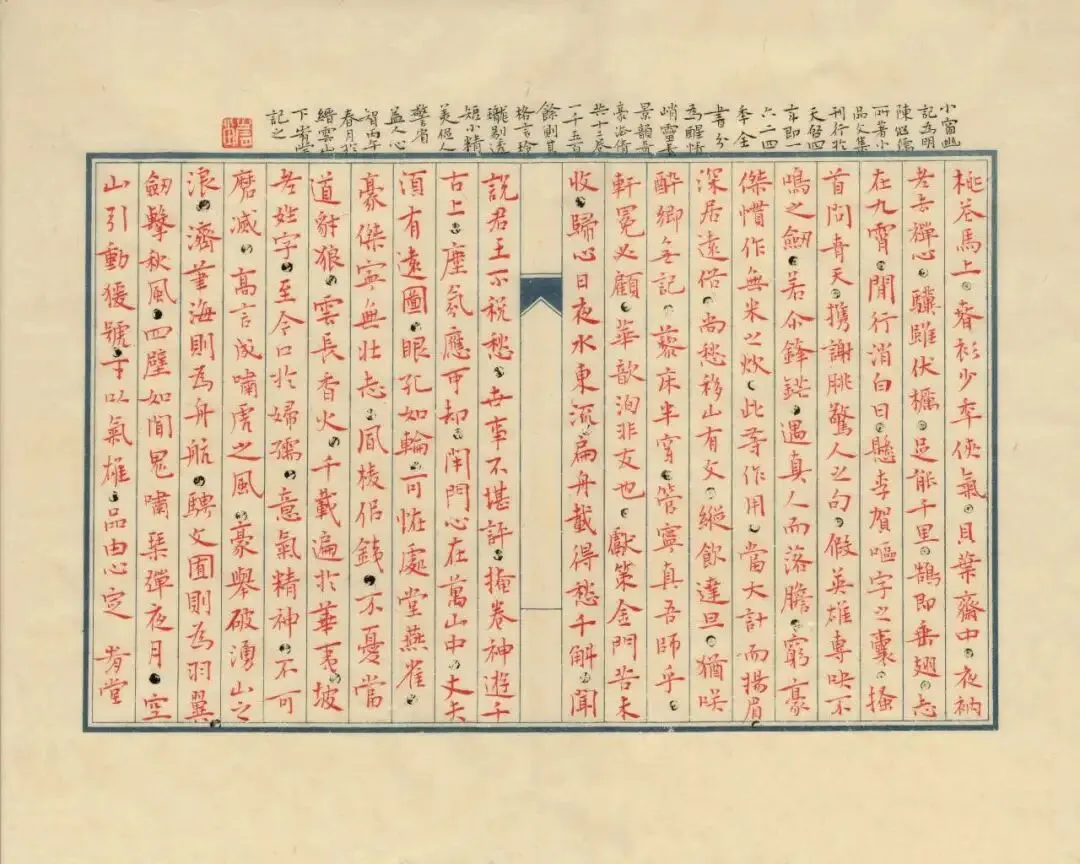 小窗幽
記為明
陳繼儒
所著小
品文集
刊行於
天啓四
年即一
六二四
年全
書分
為醒情
峭靈素
景韻奇
豪法倩
共十二卷
一千五百
餘則其
格言玲
瓏剔透
短小精
美促人
警省
益人心
智丙午
春月於
縉雲山
下肯堂
記之
桃花馬上。春衫少年俠氣。貝葉齋中。夜衲
老去禪心。驥雖伏櫪。足能千里。鵠即垂翅。志
在九霄。閒行消白日。懸李賀嘔字之囊。搔
首問青天。攜謝朓驚人之句。假英雄專映不
鳴之劍。若尒鋒鋩。遇真人而落膽。窮豪
傑慣作無米之炊。此等作用。當大計而揚眉。
深居遠俗。尚愁移山有文。縱飲達旦。猶笑
醉鄉無記。藜床半穿。管寧真吾師乎。
軒冕必顧。華歆洵非友也。獻策金門苦未
收。歸心日夜水東流。扁舟載得愁千斛。聞
說君王不稅愁。世事不堪評。掩卷神遊千
古上。塵氛應可却。閉門心在萬山中。丈夫
須有遠圖。眼孔如輪。可怪處堂燕雀。
豪傑寧無壯志。風稜似鐵。不憂當
道豺狼。雲長香火。千載遍於華夷。坡
老姓字。至今口於婦孺。意氣精神。不可
磨滅。高言成嘯虎之風。豪舉破湧山之
浪。濟筆海則為舟航。騁文囿則為羽翼。
劍擊秋風。四壁如聞鬼嘯。琴彈夜月。空
山引動猿號。士以氣雄。品由心定 肯堂